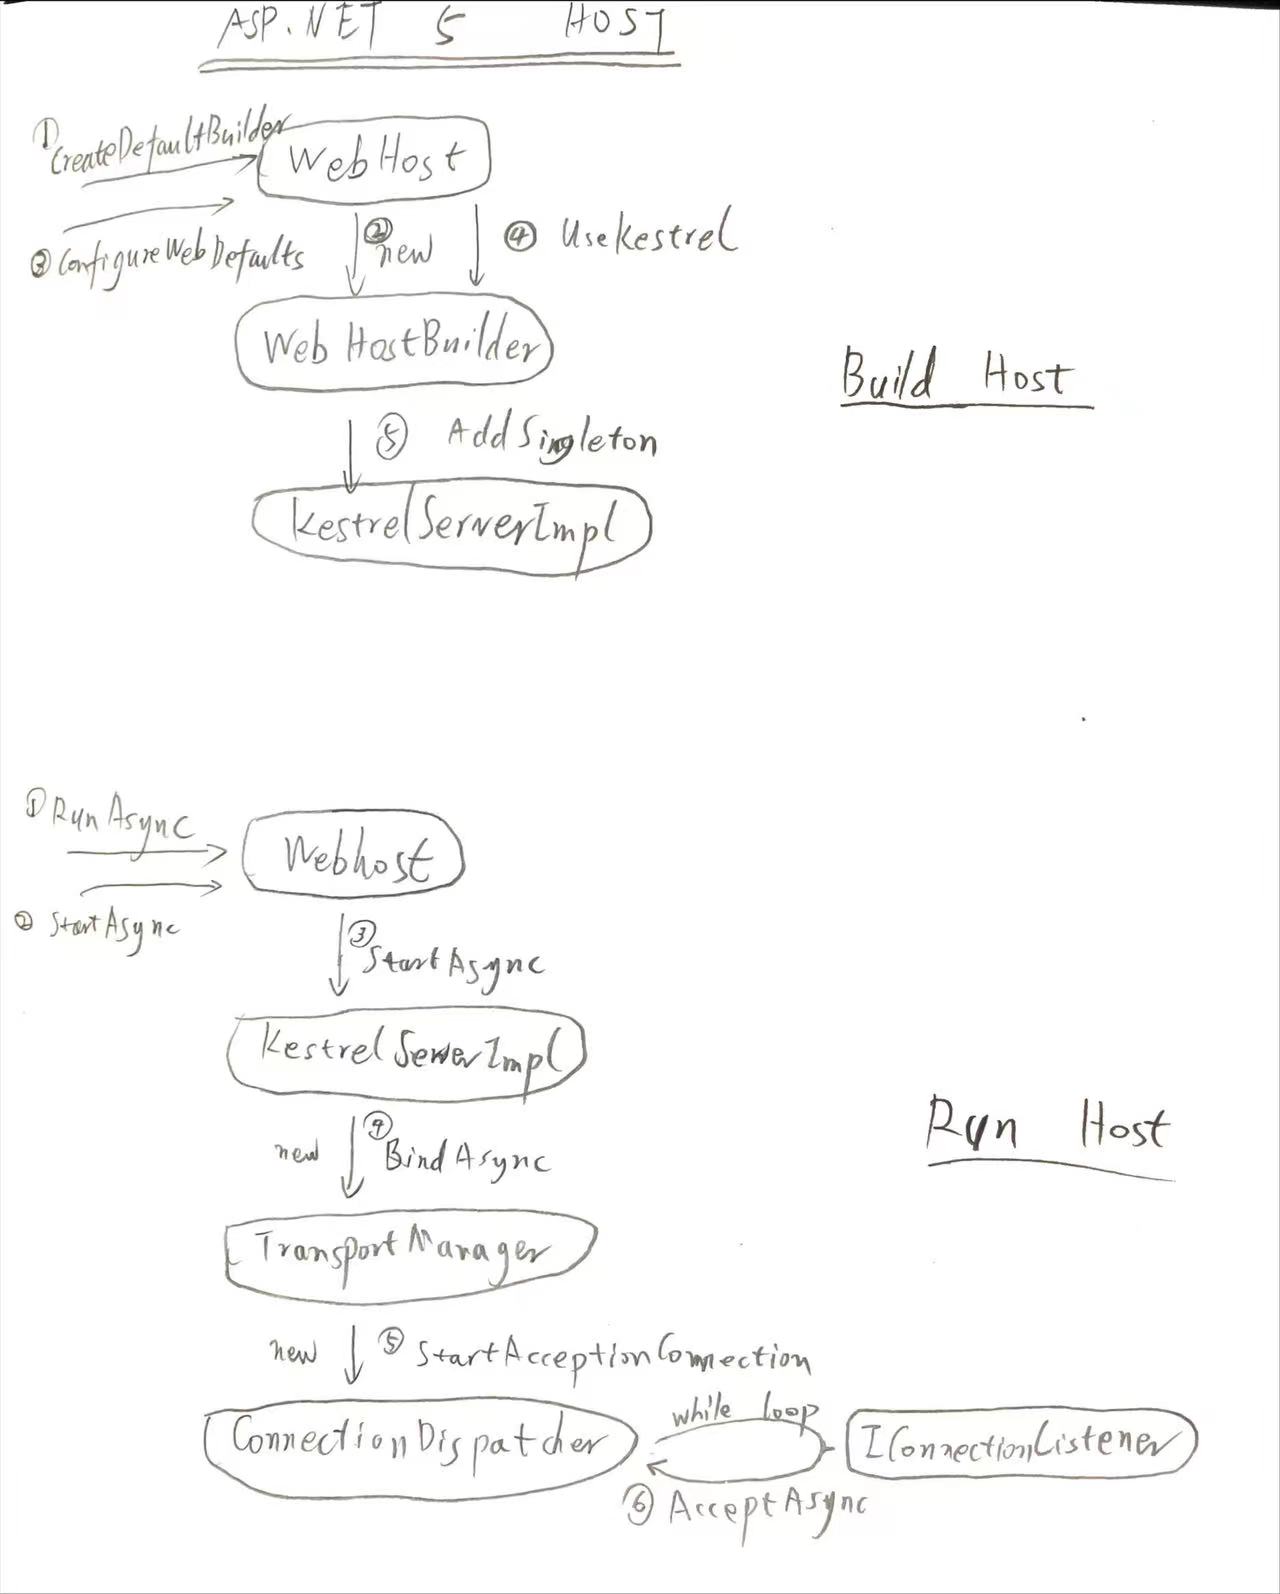 ASP.NET 5 HOST
① CreateDefaultBuilder
WebHost
② new
④ UseKestrel
③ ConfigureWebDefaults
WebHostBuilder
Build Host
⑤ AddSingleton
KestrelServerImpl
① RunAsync
Webhost
② StartAsync
③ StartAsync
KestrelServerImpl
Run Host
new ④ BindAsync
TransportManager
new ⑤ StartAcceptionConnection
while loop
ConnectionDispatcher
IConnectionListener
⑥ AcceptAsync